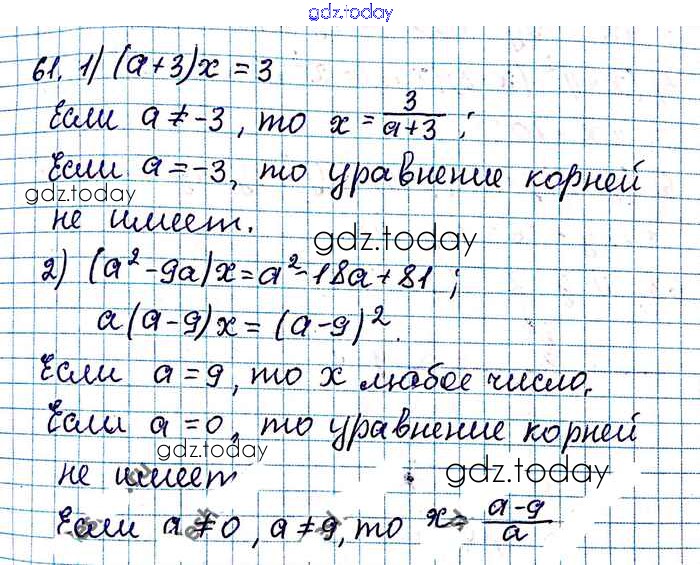 gdz.today
61. 1) (a+3)x = 3
Если a ≠ -3, то x = 3/(a+3) ;
Если a = -3, то уравнение корней
gdz.today
не имеет.
gdz.today
2) (a² - 9a)x = a² - 18a + 81 ;
a(a-9)x = (a-9)².
Если a = 9, то x любое число.
Если a = 0, то уравнение корней
gdz.today
не имеет
gdz.today
Если a ≠ 0, a ≠ 9, то x = (a-9)/a